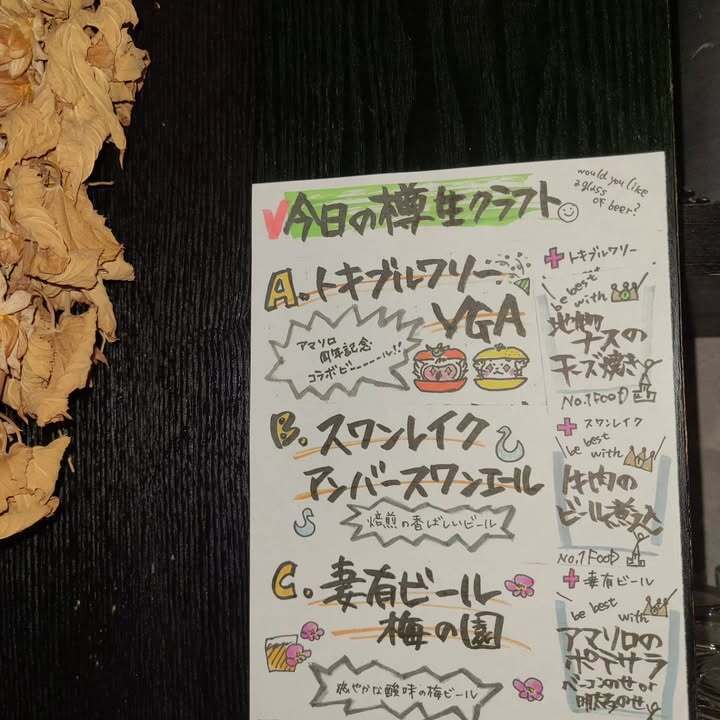 今日の樽生クラフト
would you like
a glass
of beer?
A.トキブルワリー
VGA
アマソロ
周年記念
コラボビール!!
+トキブルワリー
be best
with
地物
ナスの
チーズ焼き
No.1 FOOD
B.スワンレイク
アンバースワンエール
焙煎の香ばしいビール
+スワンレイク
be best
with
ビール煮込
No.1 FOOD
C.妻有ビール
梅の園
爽やかな酸味の梅ビール
+妻有ビール
be best
with
アマソロの
ポテサラ
ベーコンのせor
明太子のせ